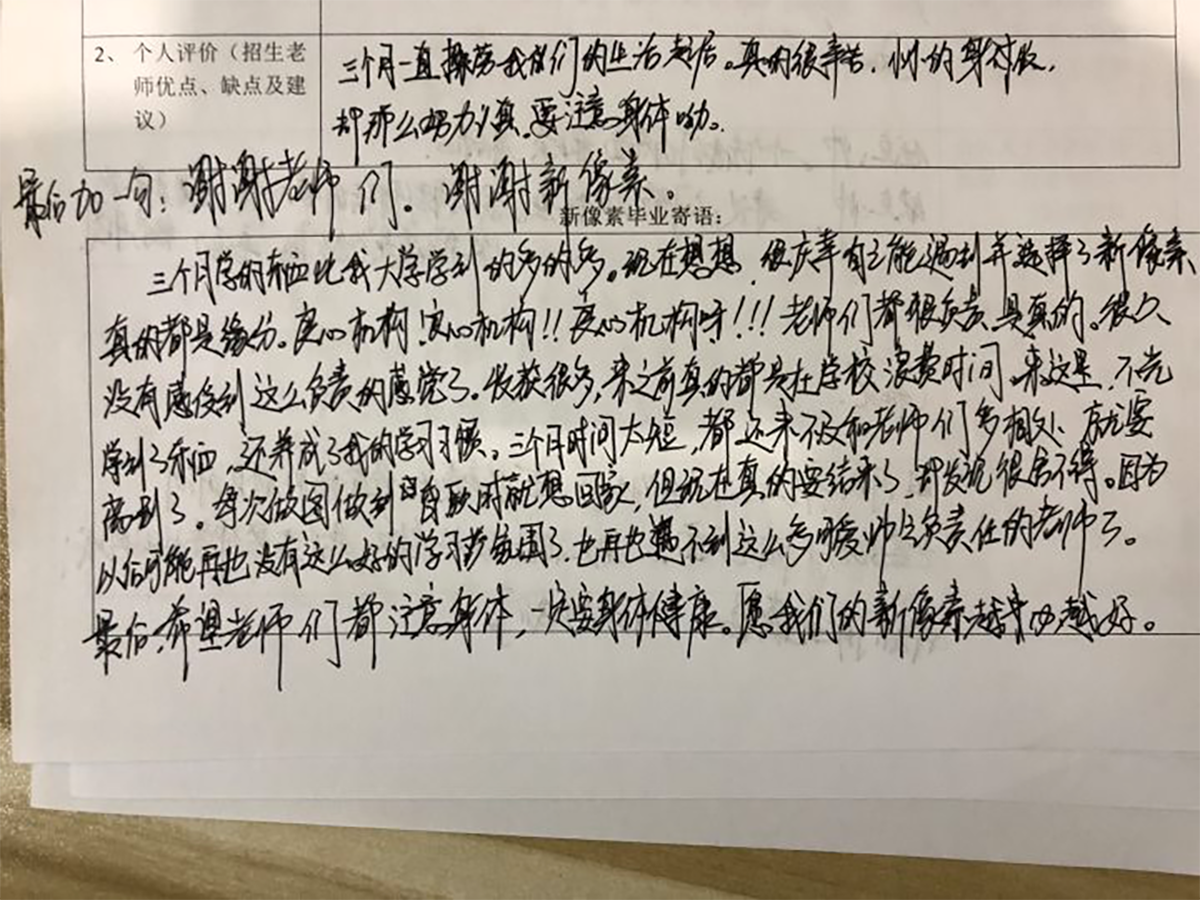 2、个人评价（招生老
师优点、缺点及建
议）
三个月一直操劳我们的生活起居。真的很辛苦，小小的身材，
却那么努力认真，要注意身体呦。
最后加一句：谢谢老师们。谢谢新像素。
新像素毕业寄语：
三个月学的东西比我大学学到的多的多。现在想想，很庆幸自己能遇到并选择了新像素
真的都是缘分。良心机构，良心机构！！良心机构呀！！！老师们都很负责，是真的。很久
没有感受到这么负责的感觉了。收获很多，来之前真的都是在学校浪费时间。来这里，不光
学到了东西，还养成了我的学习习惯。三个月时间太短，都还来不及和老师们多相处，就要
离别了。每次做图做到自闭时就想回家，但现在真的要结束了，却发现很舍不得。因为
以后可能再也没有这么好的学习氛围了，也再也遇不到这么多可爱帅气负责任的老师了。
最后，希望老师们都注意身体，一定要身体健康。愿我们的新像素越来越好。